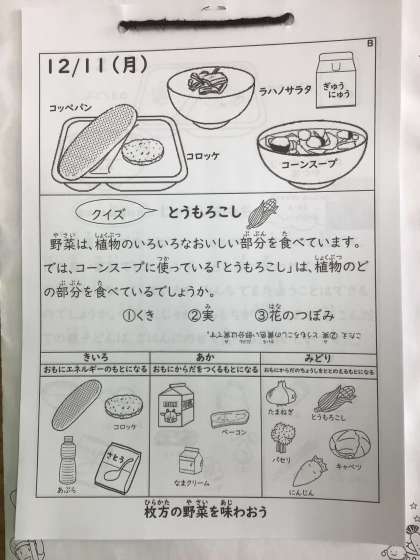 B
12/11(月)
コッペパン
ラハノサラタ
ぎゅう
にゅう
コロッケ
コーンスープ
クイズ
とうもろこし
野菜は、植物のいろいろなおいしい部分を食べています。
では、コーンスープに使っている「とうもろこし」は、植物のど
の部分を食べているでしょうか。
①くき ②実 ③花のつぼみ
こたえ ② とうもろこしの黄色い部分は実です。
きいろ あか みどり
おもにエネルギーのもとになる おもにからだをつくるもとになる おもにからだのちょうしをととのえるもとになる
コロッケ
あぶら
さとう
ベーコン
なまクリーム
たまねぎ
とうもろこし
パセリ
キャベツ
にんじん
枚方の野菜を味わおう